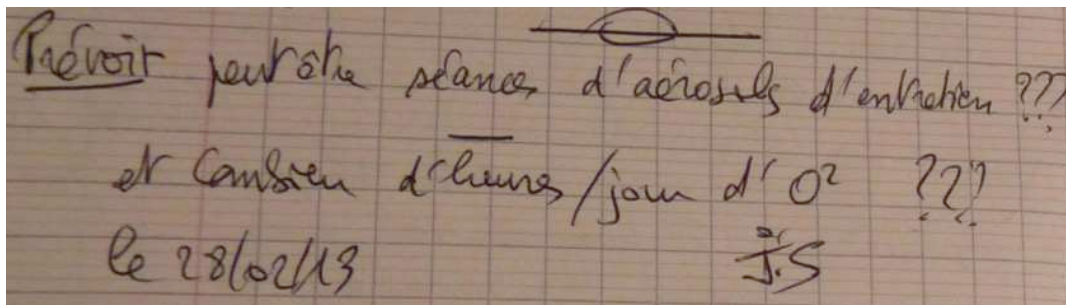 Prévoir peut être séances d'aérosols d'entretien ???
et Combien d'heures/jour d'O² ???
le 28/02/13 Dr J.S